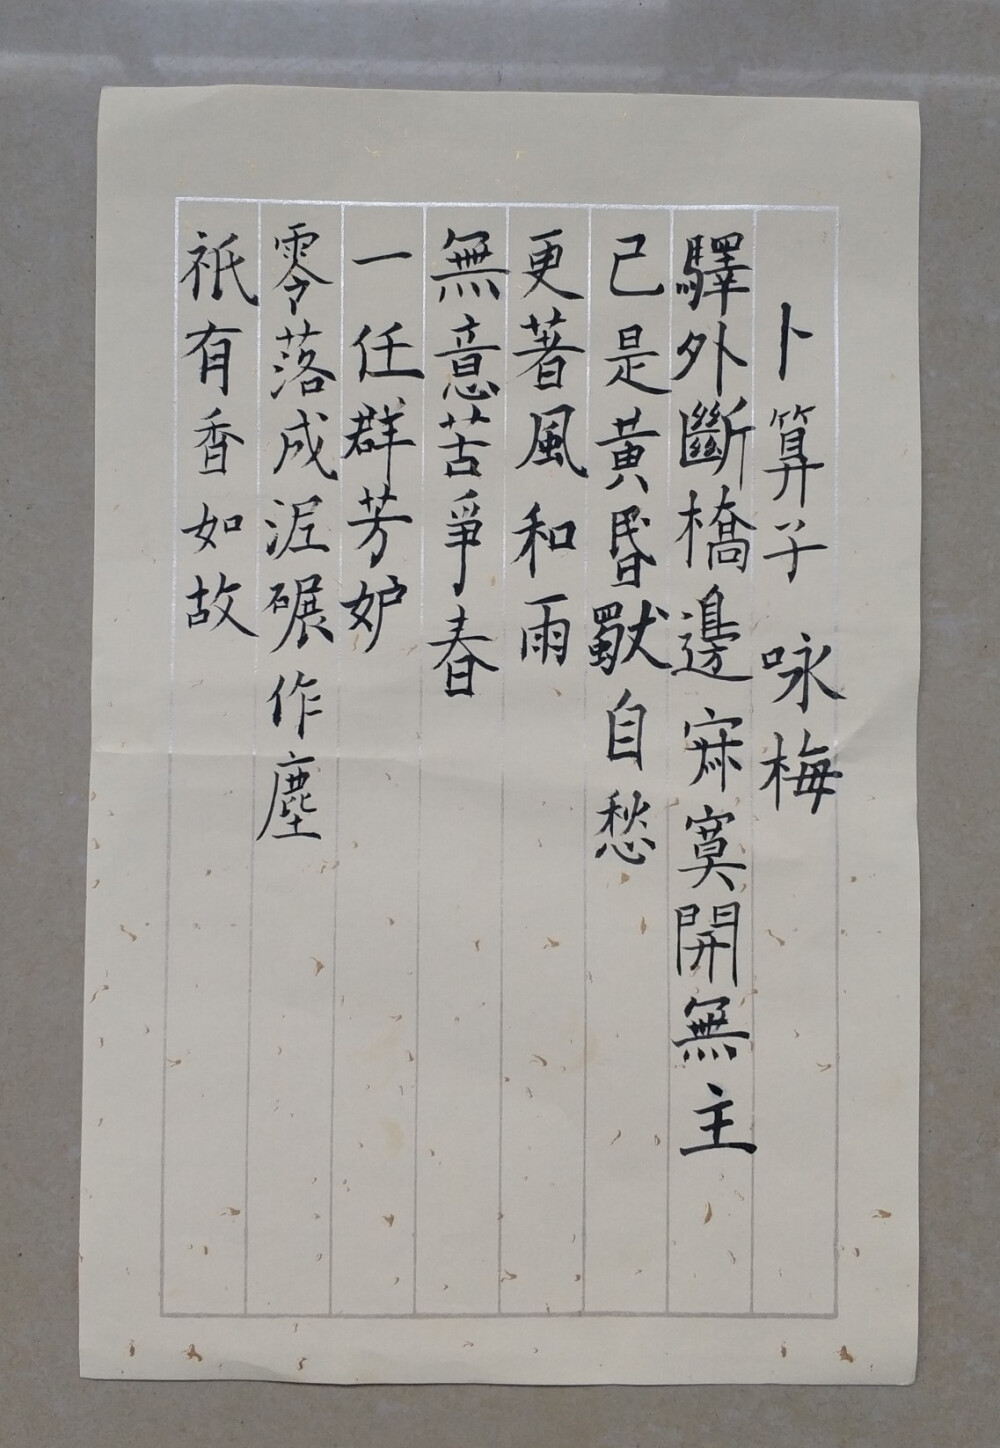 卜算子 咏梅
驛外斷橋邊寂寞開無主
已是黃昬獨自愁
更著風和雨
無意苦爭春
一任群芳妒
零落成泥碾作塵
祇有香如故